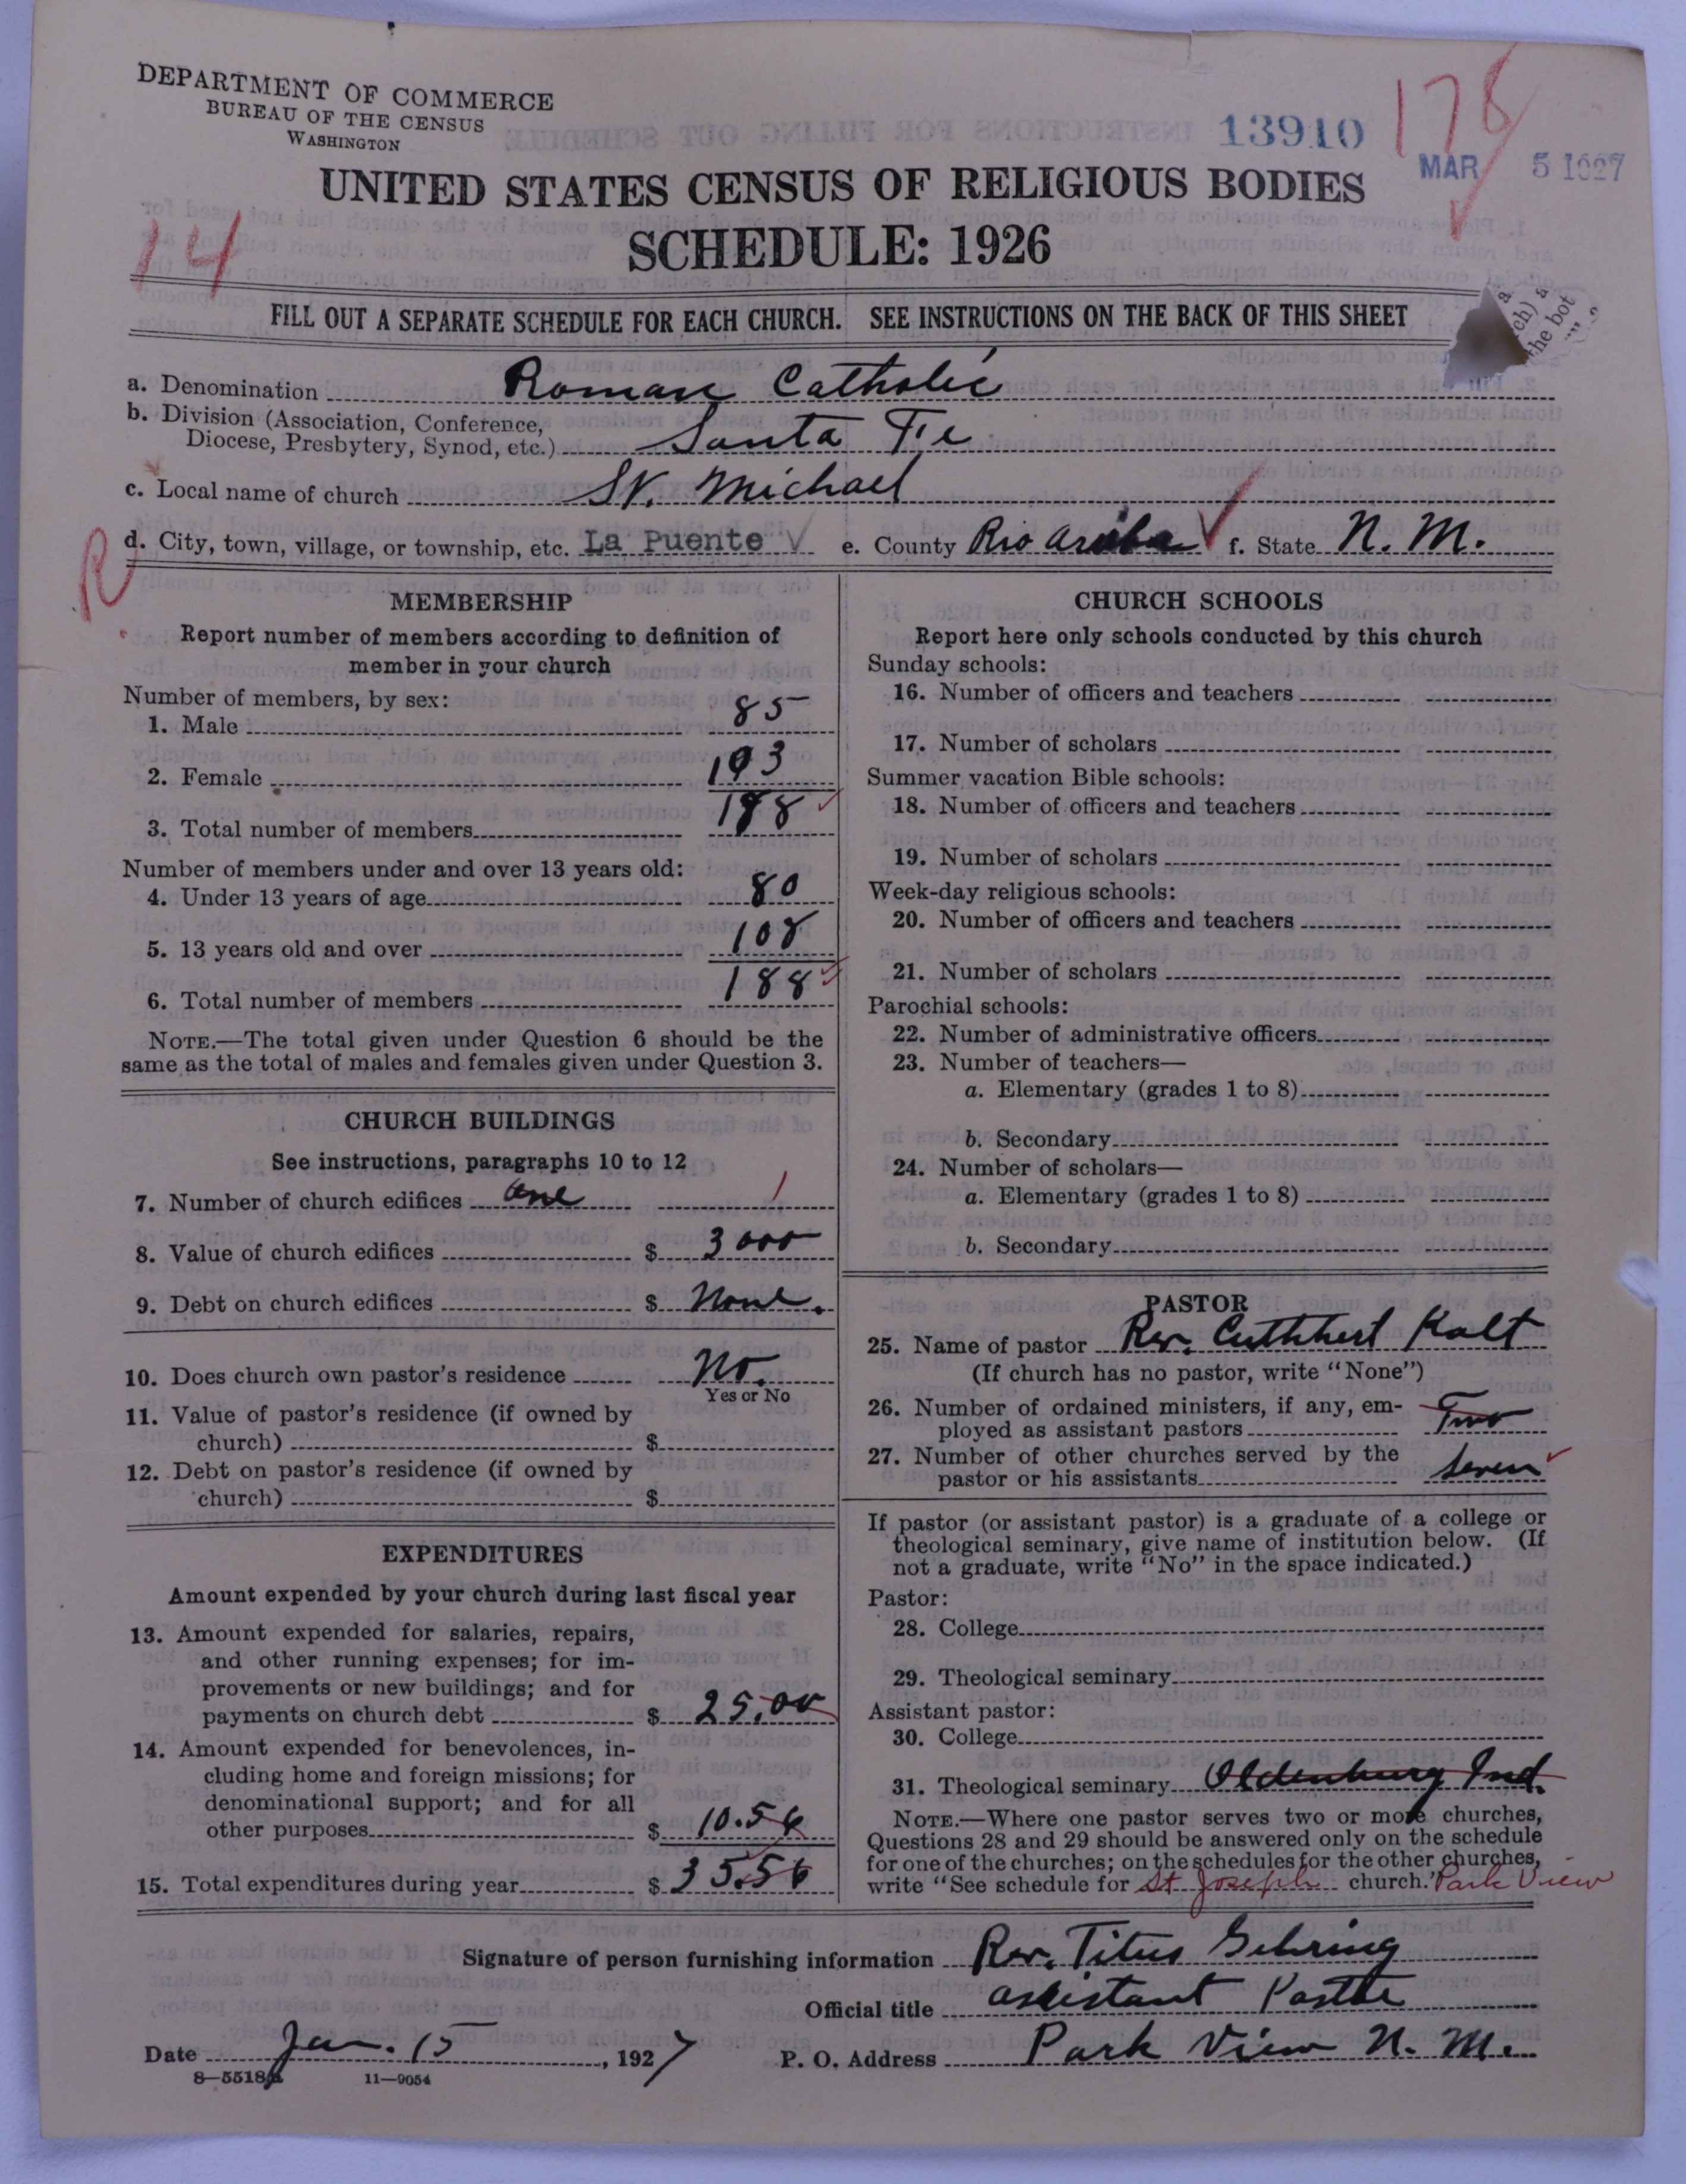 DEPARTMENT OF COMMERCE
BUREAU OF THE CENSUS
WASHINGTON
13910
178
MAR 5 1927
UNITED STATES CENSUS OF RELIGIOUS BODIES
SCHEDULE: 1926
14
FILL OUT A SEPARATE SCHEDULE FOR EACH CHURCH. SEE INSTRUCTIONS ON THE BACK OF THIS SHEET
a. Denomination Roman Catholic
b. Division (Association, Conference,
Diocese, Presbytery, Synod, etc.) Santa Fe
c. Local name of church St. Michael
R
d. City, town, village, or township, etc. La Puente e. County Rio Arriba f. State N. M.
MEMBERSHIP
Report number of members according to definition of
member in your church
Number of members, by sex:
1. Male 85
2. Female 103
3. Total number of members 188
Number of members under and over 13 years old:
4. Under 13 years of age 80
5. 13 years old and over 108
6. Total number of members 188
NOTE.—The total given under Question 6 should be the
same as the total of males and females given under Question 3.
CHURCH BUILDINGS
See instructions, paragraphs 10 to 12
7. Number of church edifices One 1
8. Value of church edifices $ 3000
9. Debt on church edifices $ None.
10. Does church own pastor's residence No.
Yes or No
11. Value of pastor's residence (if owned by
church) $
12. Debt on pastor's residence (if owned by
church) $
EXPENDITURES
Amount expended by your church during last fiscal year
13. Amount expended for salaries, repairs,
and other running expenses; for im-
provements or new buildings; and for
payments on church debt $ 25.00
14. Amount expended for benevolences, in-
cluding home and foreign missions; for
denominational support; and for all
other purposes $ 10.56
15. Total expenditures during year $ 35.56
CHURCH SCHOOLS
Report here only schools conducted by this church
Sunday schools:
16. Number of officers and teachers
17. Number of scholars
Summer vacation Bible schools:
18. Number of officers and teachers
19. Number of scholars
Week-day religious schools:
20. Number of officers and teachers
21. Number of scholars
Parochial schools:
22. Number of administrative officers
23. Number of teachers—
a. Elementary (grades 1 to 8)
b. Secondary
24. Number of scholars—
a. Elementary (grades 1 to 8)
b. Secondary
PASTOR
25. Name of pastor Rev. Cuthbert Kalt
(If church has no pastor, write "None")
26. Number of ordained ministers, if any, em-
ployed as assistant pastors Two
27. Number of other churches served by the
pastor or his assistants Seven
If pastor (or assistant pastor) is a graduate of a college or
theological seminary, give name of institution below. (If
not a graduate, write "No" in the space indicated.)
Pastor:
28. College
29. Theological seminary
Assistant pastor:
30. College
31. Theological seminary Oldenburg Ind.
NOTE.—Where one pastor serves two or more churches,
Questions 28 and 29 should be answered only on the schedule
for one of the churches; on the schedules for the other churches,
write "See schedule for St Joseph church." Park View
Signature of person furnishing information Rev. Titus Gehring
Official title assistant Pastor
Date Jan. 15, 1927 P. O. Address Park View N. M.
8—5518 11—9054